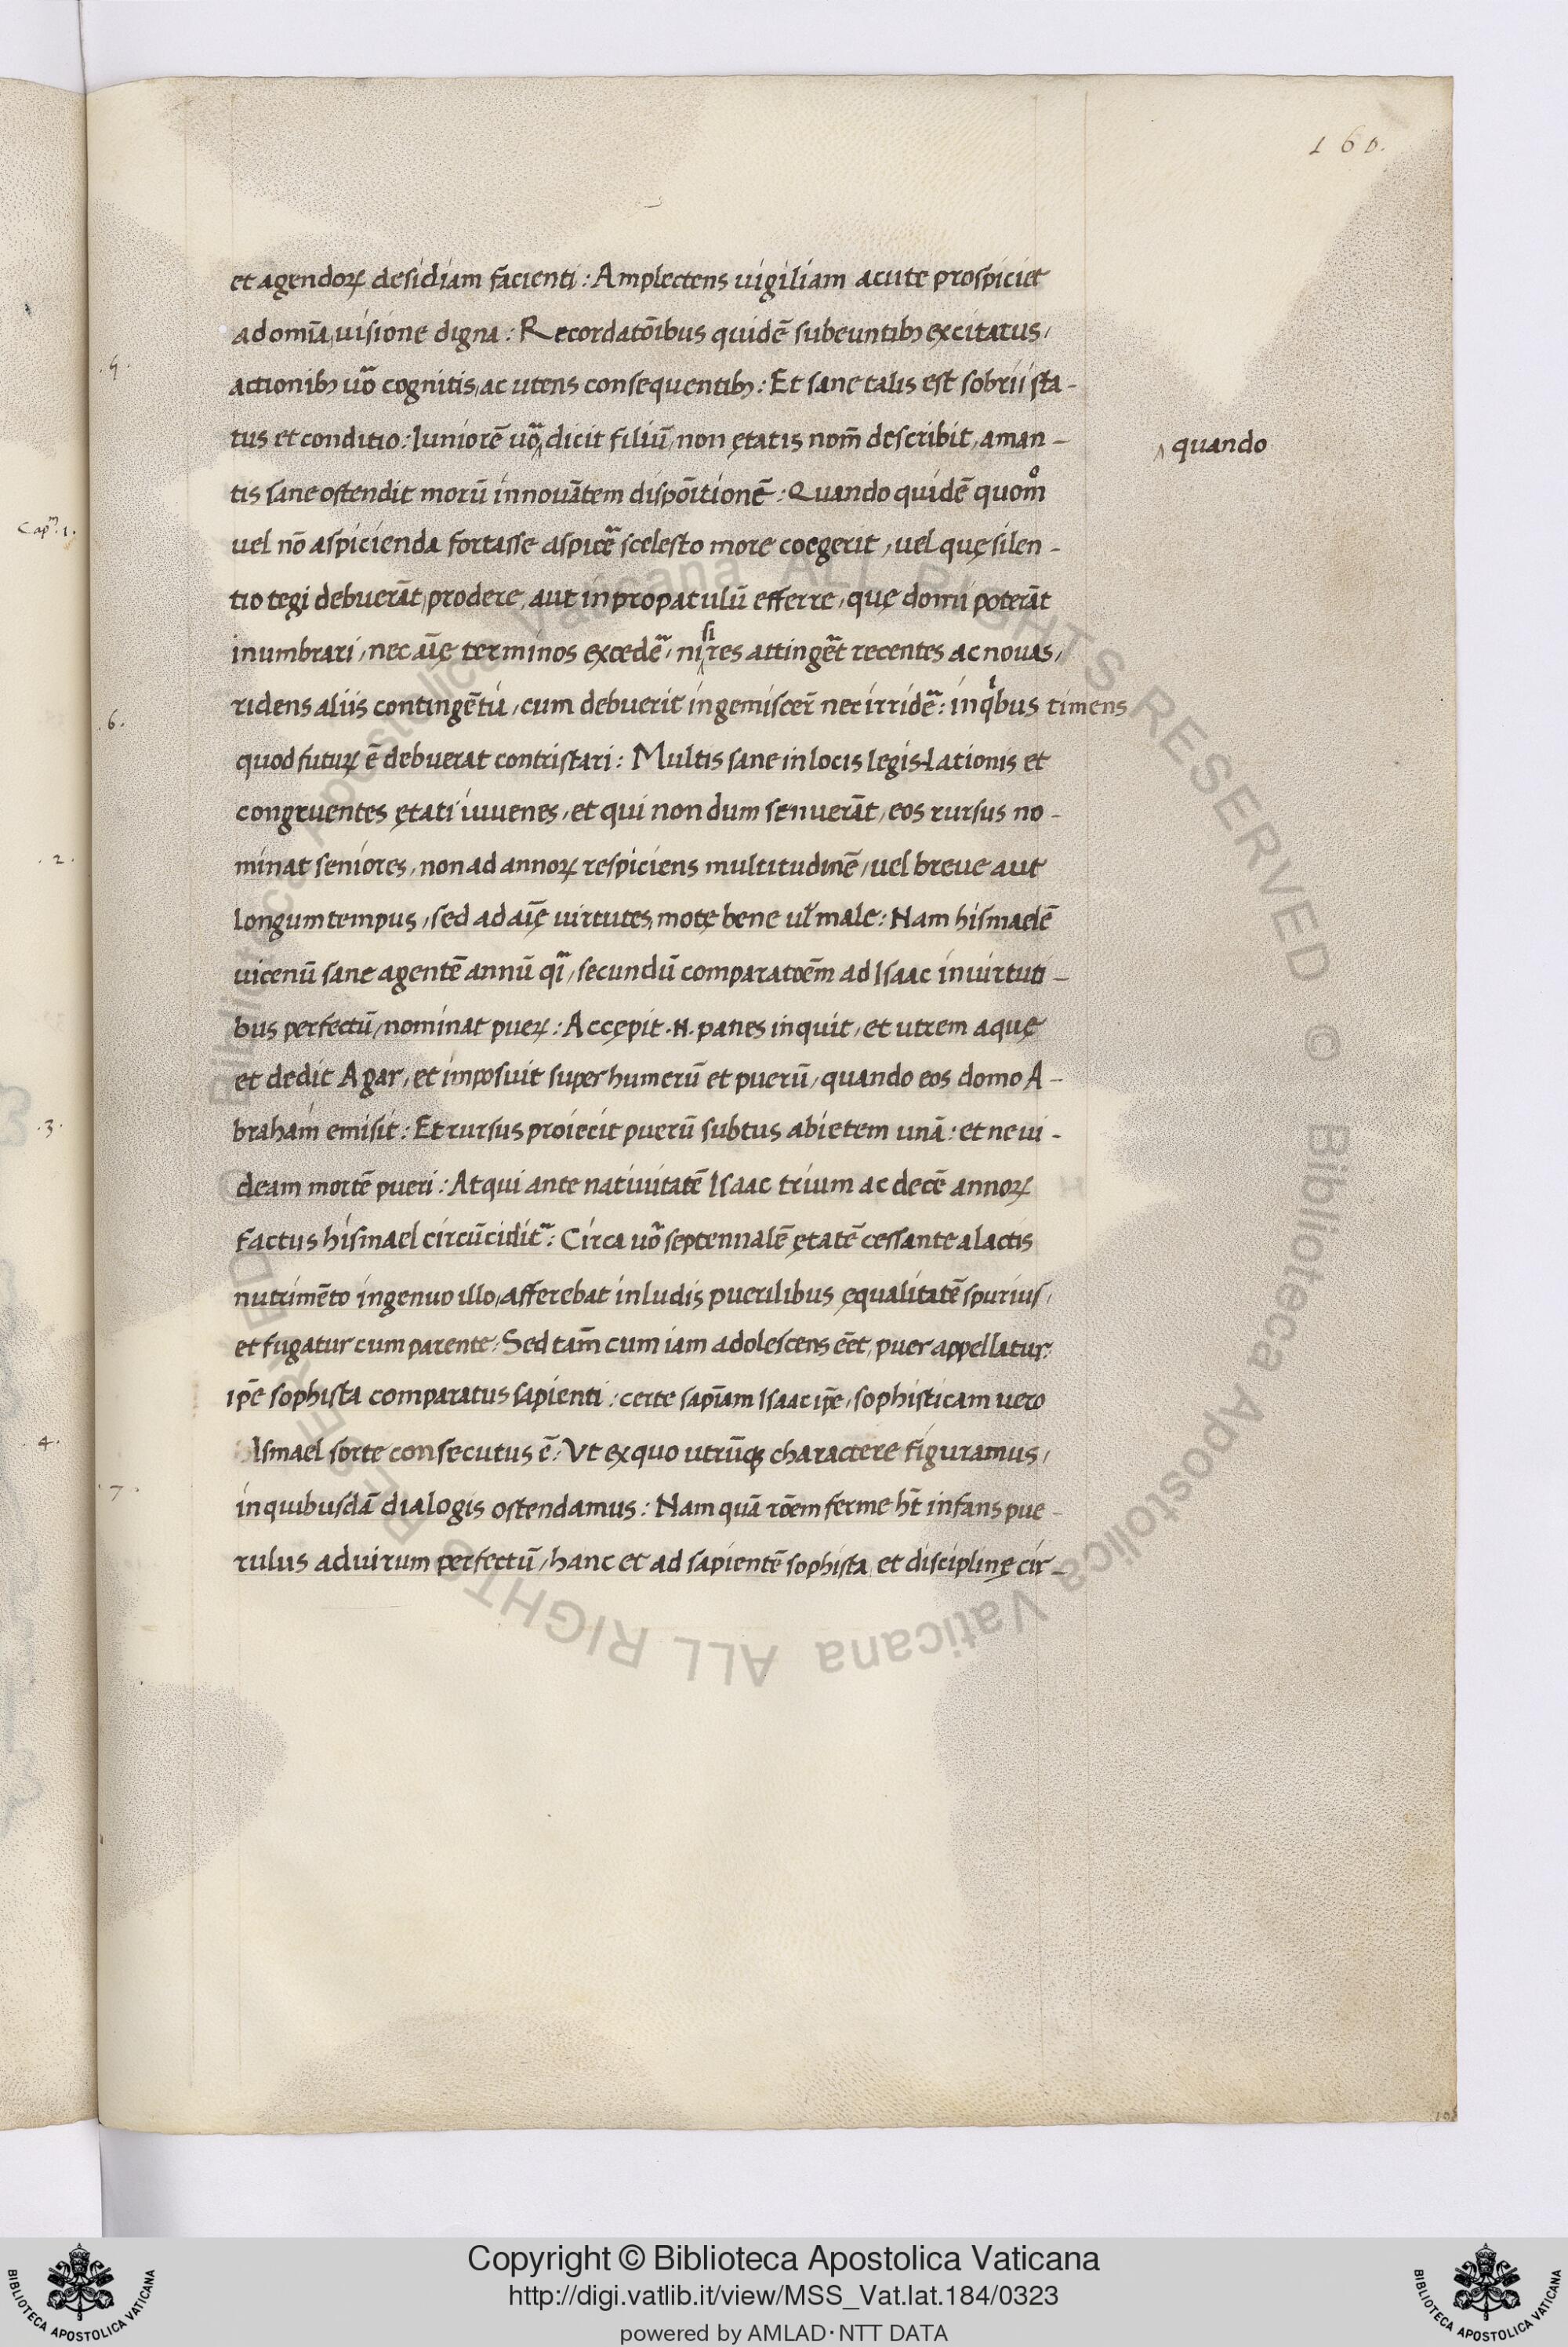 160.
et agendoꝝ desidiam facienti : Amplectens uigiliam acute prospiciet
ad omīa, uisione digna : Recordatōibus quidē subeuntibꝫ excitatus,
actionibꝫ uoᷓ cognitis, ac utens consequentibꝫ : Et sane talis est sobrii sta-
tus et conditio : Iuniorē uoᷓ‸ dicit filiū, non ętatis nom̄ describit, aman-
‸ quando
tis sane ostendit morū innouātem dispōitionē : Quando quidē quom̊
uel nō aspicienda fortasse aspiceᷓ scelesto more coegerit, uel quę silen-
tio tegi debuerāt, prodere, aut in propatulū efferre, quę domi poterāt
inumbrari, nec aīę terminos excedeᷓ, ni‸si res attingeᷓt recentes ac nouas,
ridens aliis contingētia, cum debuerit ingemiscer̄ nec irrideᷓ : in qͥbus timens
quod futuꝝ ē debuerat contristari : Multis sane in locis legis-lationis et
congruentes ętati iuuenes, et qui non dum senuerāt, eos rursus no-
minat seniores, non ad annoꝝ respiciens multitudinē, uel breue aut
longum tempus, sed ad aīę uirtutes, motę bene ul̄ male : Nam hismaelē
uicenū sane agentē annū qiᷓ, secundū comparatoēm ad Isaac in uirtuti-
bus perfectū, nominat pueꝝ : Accępit .N. panes inquit, et utrem aquę
et dedit Agar, et imposuit super humerū et puerū, quando eos domo A-
braham emisit : Et rursus proiecit puerū subtus abietem unā : et ne ui-
deam mortē pueri : Atqui ante natiuitatē Isaac trium ac decē annoꝝ
factus hismael circūciditᷓ : Circa uoᷓ septennalē ętatē cessante a lactis
nutrimēto ingenuo illo, afferebat in ludis puerilibus ęqualitatē spurius,
et fugatur cum parente : Sed tam̄ cum iam adolescens eēt, puer appellatur :
ip̄e sophista comparatus sapienti : certe sapīam Isaac ip̄e, sophisticam uero
Ismael sorte consecutus ē : Vt ex quo utrūqꝫ charactere figuramus,
in quibusdā dialogis ostendamus : Nam quā rōem ferme ht̄ infans pue-
rulus ad uirum perfectū, hanc et ad sapientē sophista, et disciplinę cir-
Cap.m 1.
.2.
.3.
.4.
.6.
.7.
Copyright © Biblioteca Apostolica Vaticana
http://digi.vatlib.it/view/MSS_Vat.lat.184/0323
powered by AMLAD·NTT DATA
BIBLIOTECA APOSTOLICA VATICANA
BIBLIOTECA APOSTOLICA VATICANA
© Biblioteca Apostolica Vaticana ALL RIGHTS RESERVED © Biblioteca Apostolica Vaticana ALL RIGHTS RESERVED